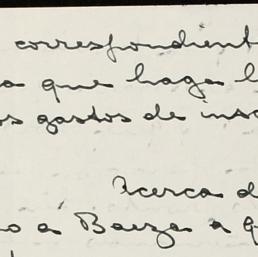 correspondient
a que haga l
os gastos de insc
Acerca d
o a Baeza a q